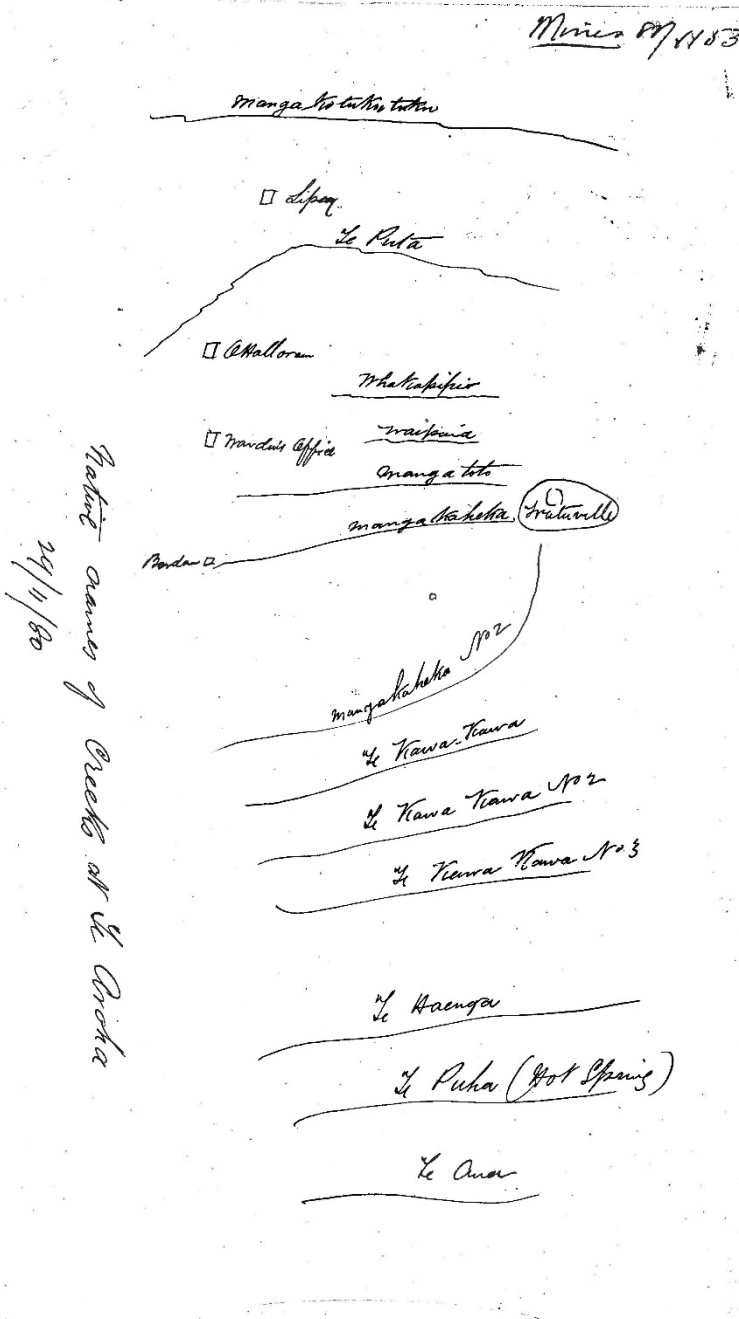 Mines
Mangakotukutuku
Lipsey
Te Puta
O'Halloran
Whakapipi
Wardens Office
Waipuna
Mangatoto
Mangakaheka
Mangakaheka No 2
Te Kawa-Kawa
Te Kawa Kawa No 2
Te Kawa Kawa No 3
Te Haenga
Te Puha (Hot Spring)
Te
Native names of Creeks at Te Aroha
24/11/80